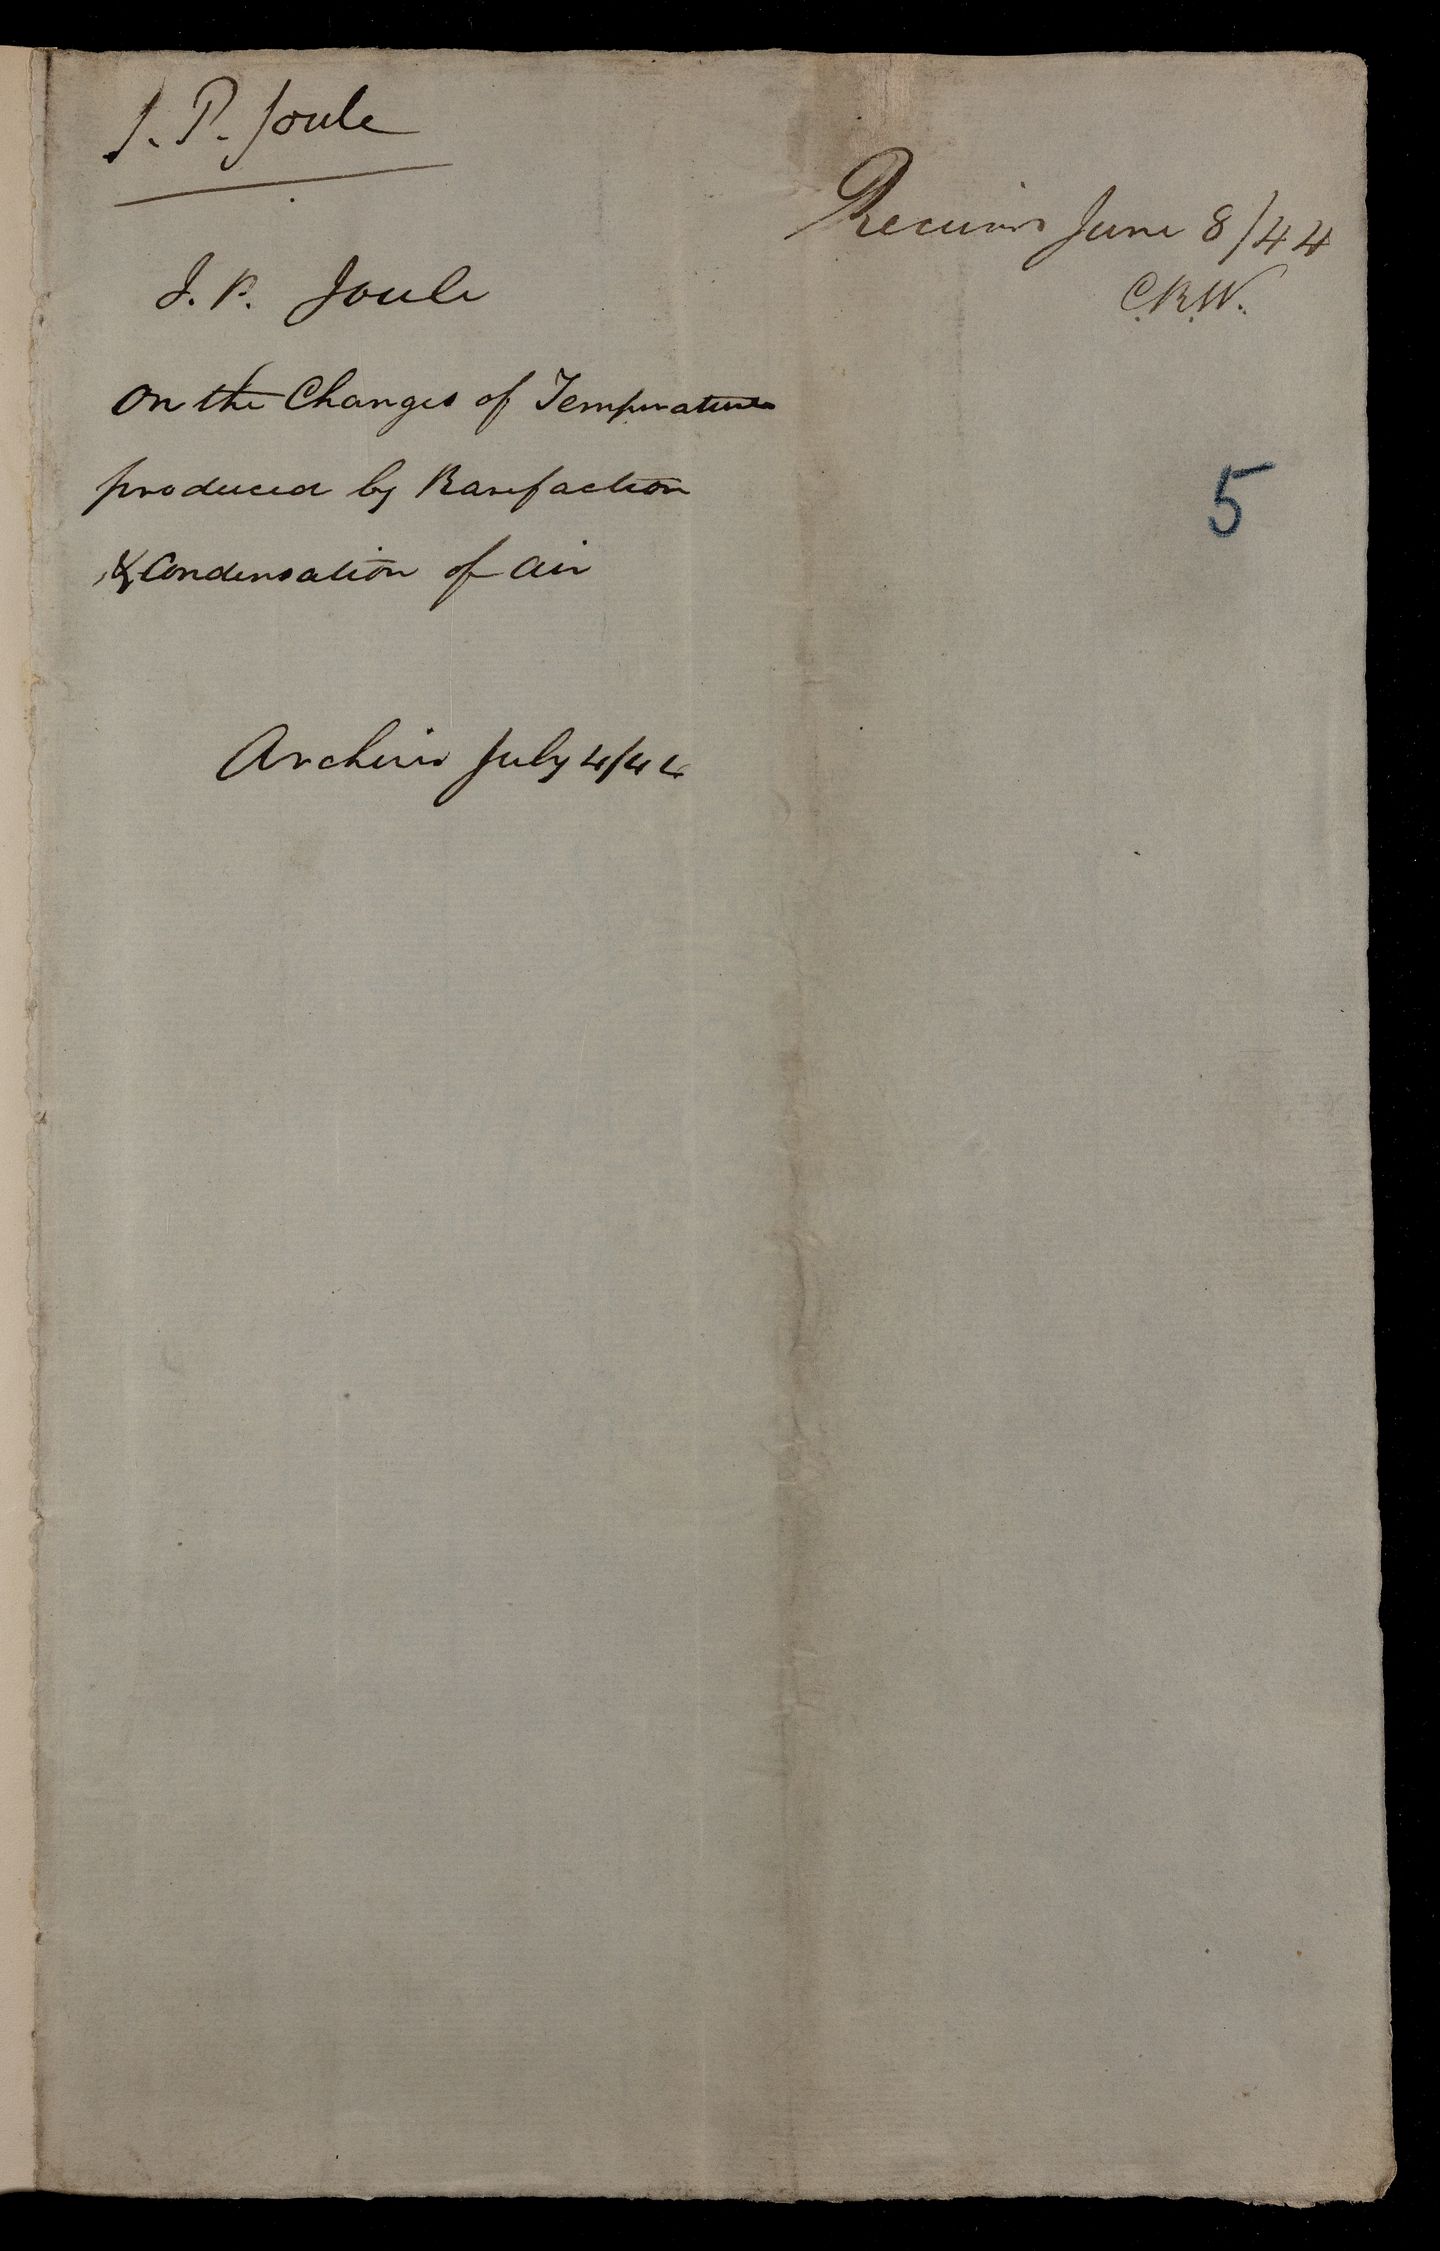 J. P. Joule
Received June 8/44
C.R.W.
J. P. Joule
On the Changes of Temperature
produced by Rarefaction
& Condensation of Air
5
Archives July 4/44